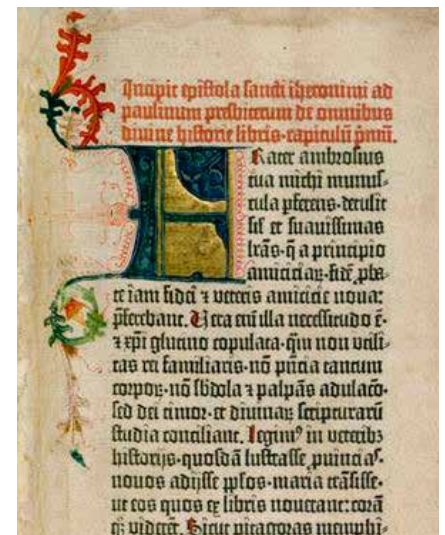 Incipit epistola sancti iheronimi ad
paulinum presbiterum de omnibus
divine historie libris·capitulū pmū.
Frater ambrosius
tua michi munus-
cula pferens·detulit
sil' et suavissimas
lrās·q̄ a principio
amiciciaꝝ·fidē pba-
te iam fidei ⁊ veteris amicicie nova:
pferebant. Vera eni illa necessitudo ē·
⁊ xpi glutino copulata·qm non utili-
tas rei familiaris·nō pncia tantum
corpoꝝ·nō sbdola ⁊ palpās adulacō·
sed dei timor·et divinaꝝ scripturarū
studia conciliant. Legim⁹ in veteribꝫ
historijs·quosdā lustrasse pvincias·
novos adijsse pplos·maria trāsisse·
ut eos quos ex libris noverant: corā
qꝫ viderēt. Sicut pitagoras memphi-